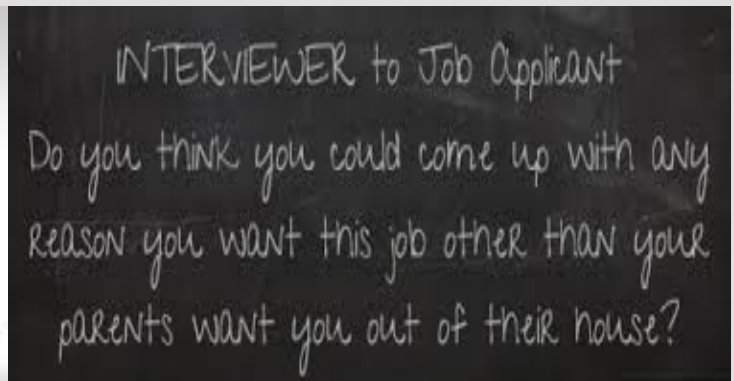 INTERVIEWER to Job Applicant
Do you think you could come up with any
reason you want this job other than your
parents want you out of their house?